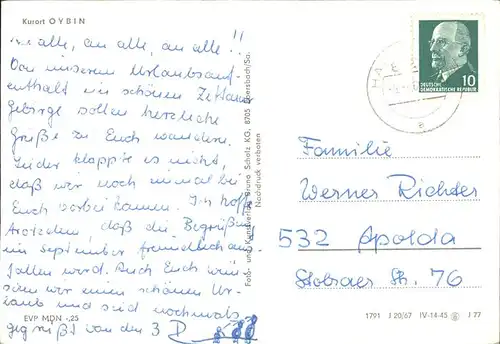 Kurort OYBIN
alle, an alle, an alle!!
Von unserem Urlaubsauf-
enthalt im schönen Zittauer
gebirge sollen herzliche
Grüße zu Euch wandern.
Leider klappte es nicht,
daß wir noch einmal bei
Euch vorbei kamen. Ich hoffe
trotzdem, daß die Begrüßung
im September freundlich aus-
fallen wird. Auch Euch wün-
schen wir einen schönen Ur-
laub und sind nochmals
gegrüßt von den 3
EVP MDN -,25
Foto- und Kunstverlag Bruno Scholz KG, 8705 Ebersbach/Sa.
Nachdruck verboten
10
DEUTSCHE
DEMOKRATISCHE REPUBLIK
Familie
Werner Richter
532 Apolda
Stobraer Str. 76
1791 J 20/67 IV-14-45 J 77